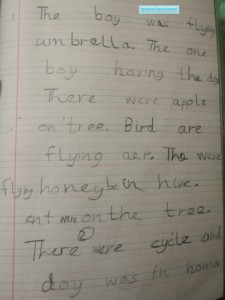 The boy was flying
umbrella. The one
boy having the dog
There were apple
on tree. Bird are
flying aer. The were
flying honeybe in hive.
ant on the tree.
There were cycle and
dog was in house